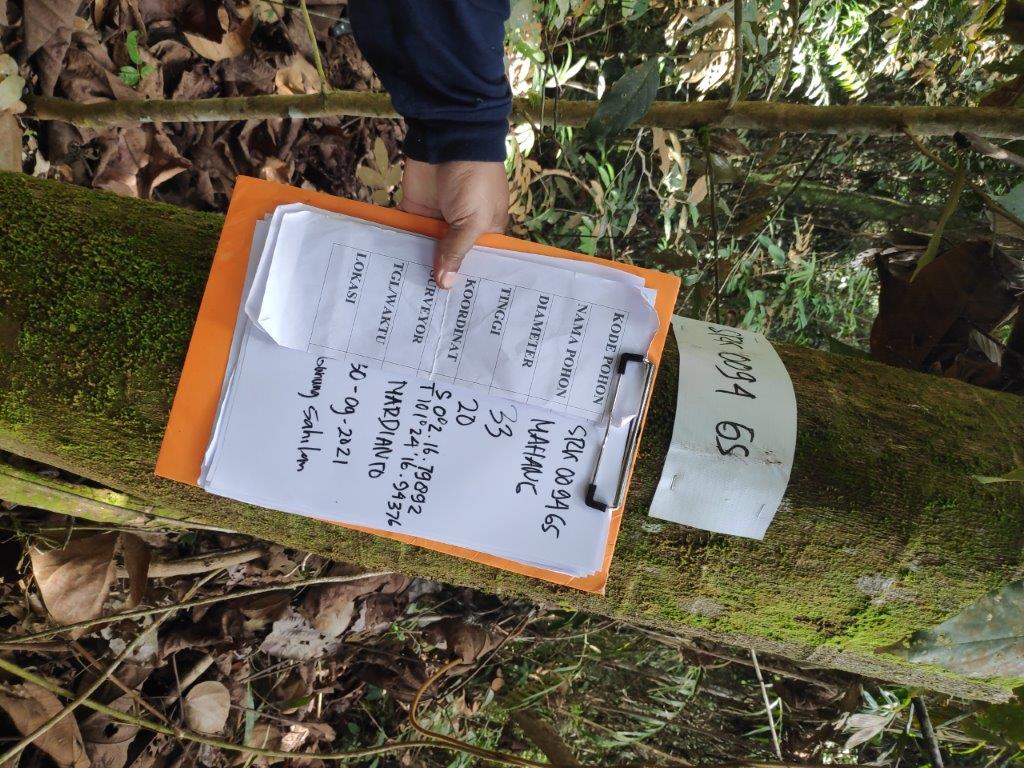 SRK 0094 GS
KODE POHON SRK 0094 GS
NAMA POHON MAHANG
DIAMETER 33
TINGGI 20
KOORDINAT S 02.16.79092
T 101°24'16.94376
SURVEYOR MARDIANTO
TGL/WAKTU 30-09-2021
LOKASI Gunung Sahilan